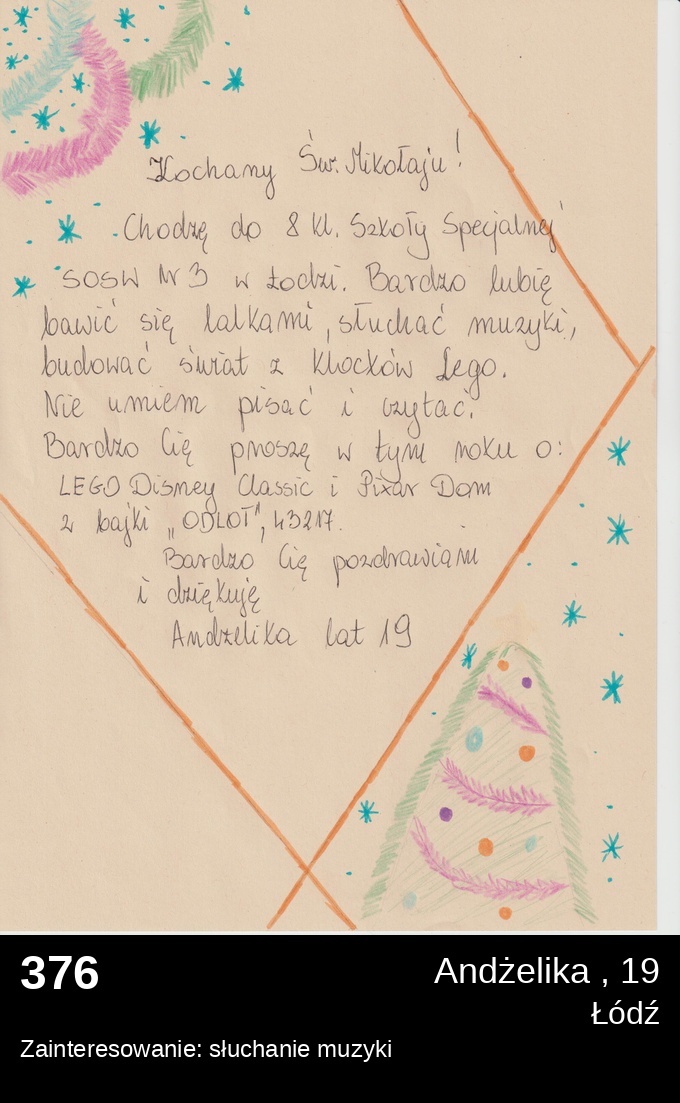 Kochany Św. Mikołaju!
Chodzę do 8 kl. Szkoły Specjalnej
SOSW Nr 3 w Łodzi. Bardzo lubię
bawić się lalkami, słuchać muzyki,
budować świat z klocków Lego.
Nie umiem pisać i czytać.
Bardzo Cię proszę w tym roku o:
LEGO Disney Classic i Pixar Dom
z bajki „ODLOT", 43217.
Bardzo Cię pozdrawiam
i dziękuję
Andżelika lat 19
376
Andżelika , 19
Łódź
Zainteresowanie: słuchanie muzyki